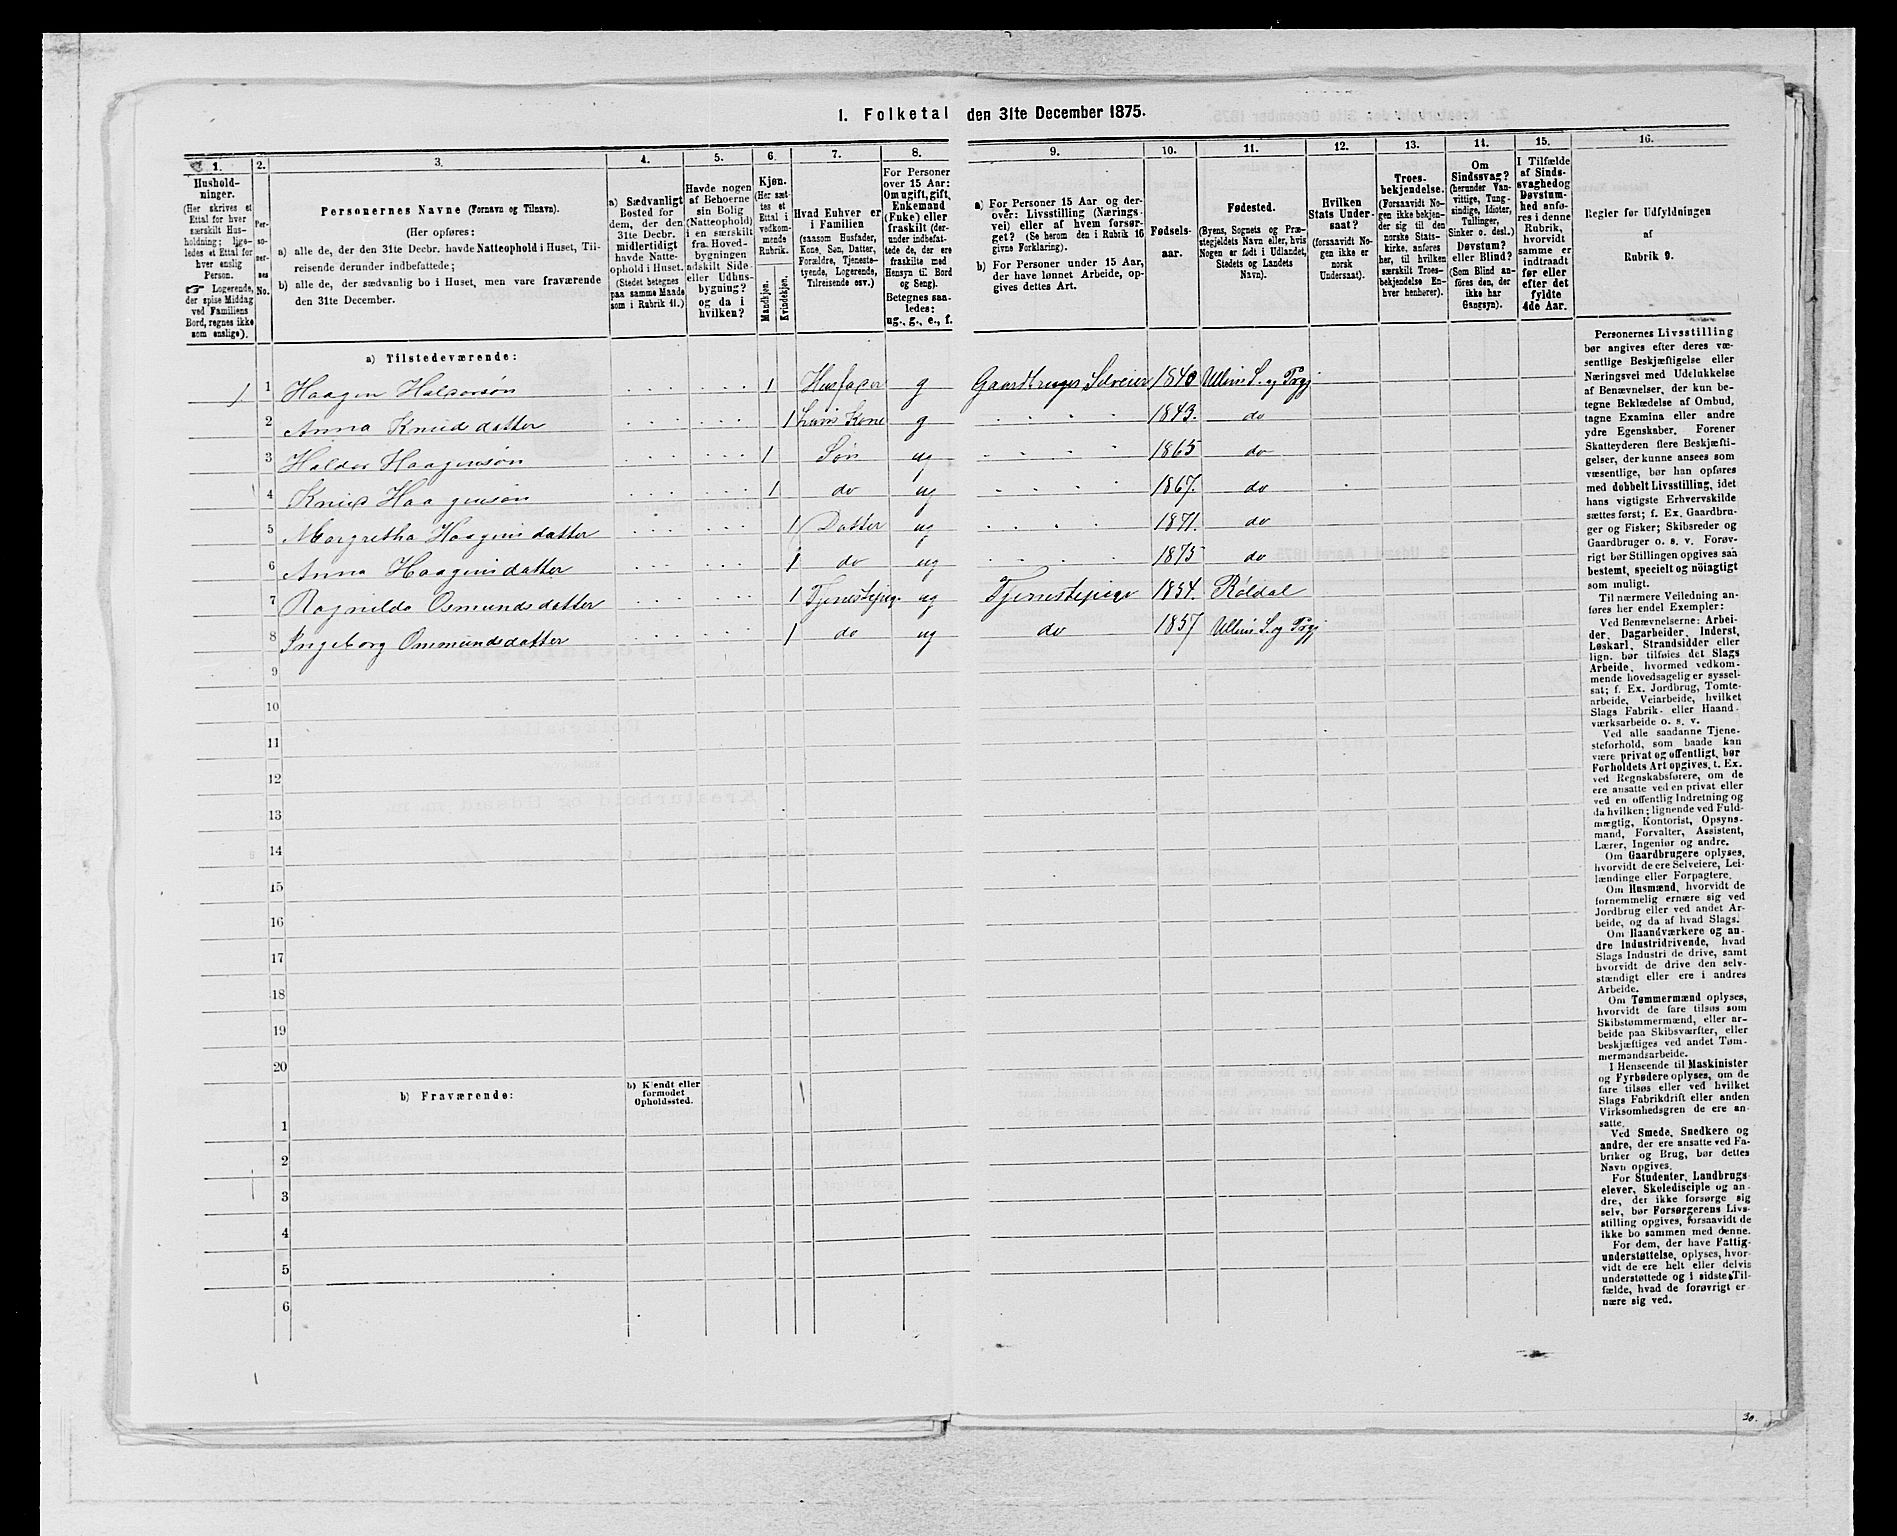 1. Folketal den 31te December 1875.
1. 2. 3. 4. 5. 6. 7. 8. 9. 10. 11. 12. 13. 14. 15. 16.
Hushold-
ninger.
(Her skrives et
Ettal for hver
særskilt Hus-
holdning; lige-
ledes et Ettal for
hver enslig
Person.
☞ Logerende,
der spise Middag
ved Familiens
Bord, regnes ikke
som enslige).
Per-
so-
ner-
nes
No.
Personernes Navne (Fornavn og Tilnavn).
(Her opføres:
a) alle de, der den 31te Decbr. havde Natteophold i Huset, Til-
reisende derunder indbefattede;
b) alle de, der sædvanlig bo i Huset, men vare fraværende
den 31te December.
a) Sædvanligt
Bosted for
dem, der den
31te Decbr.
midlertidigt
havde Natte-
ophold i Huset.
(Stedet betegnes
paa samme Maade
som i Rubrik 11.)
Havde nogen
af Beboerne
sin Bolig
(Natteophold)
i en særskilt
fra Hoved-
bygningen
adskilt Side-
eller Udhus-
bygning?
og da i
hvilken?
Kjøn.
(Her sæt-
tes et
Ettal i
vedkom-
mende
Rubrik.
Mandkjøn.
Kvindekjøn.
Hvad Enhver er
i Familien
(saasom Husfader,
Kone, Søn, Datter,
Forældre, Tjeneste-
tyende, Logerende,
Tilreisende osv.)
For Personer
over 15 Aar:
Om ugift, gift,
Enkemand
(Enke) eller
fraskilt (der-
under indbefat-
tede de, der ere
fraskilte med
Hensyn til Bord
og Seng).
Betegnes saa-
ledes:
ug., g., e., f.
a) For Personer 15 Aar og der-
over: Livsstilling (Nærings-
vei) eller af hvem forsør-
get? (Se herom den i Rubrik 16
givne Forklaring).
b) For Personer under 15 Aar,
der have lønnet Arbeide, op-
gives dettes Art.
Fødsels-
aar.
Fødested.
(Byens, Sognets og Præ-
stegjeldets Navn eller, hvis
Nogen er født i Udlandet,
Stedets og Landets
Navn).
Hvilken
Stats Under-
saat?
(forsaavidt No-
gen ikke er
norsk
Undersaat).
Troes-
bekjendelse.
(Forsaavidt No-
gen ikke bekjen-
der sig til den
norske Stats-
kirke, anføres
her, til hvilken
særskilt Troes-
bekjendelse En-
hver henhører).
Om
Sindssvag?
(herunder Van-
vittige, Tung-
sindige, Idioter,
Tullinger,
Sinker o. desl.)
Døvstum?
eller Blind?
(Som Blind an-
føres den, der
ikke har
Gangsyn).
I Tilfælde
af Sinds-
svaghed og
Døvstum-
hed anfø-
res i denne
Rubrik,
hvorvidt
samme er
indtraadt
før eller
efter det
fyldte
4de Aar.
Regler for Udfyldningen
af
Rubrik 9.
a) Tilstedeværende:
1 1 Haagen Haldorsøn 1 Husfader g Gaardbruger Selveier 1840 Ullens S. og Prgj
2 Anna Knudsdatter 1 hans Kone g 1843. do
3 Haldor Haagensøn 1 Søn ug 1865 do
4 Knud Haagensøn 1 do ug 1867. do
5 Margretha Haagensdatter 1 Datter ug 1871. do
6 Anna Haagensdatter 1 do ug 1875 do
7 Ragnilda Osmundsdatter 1 Tjenestepige ug Tjenestepige 1854. Röldal
8 Ingeborg Ommundsdatter 1 do ug do 1857 Ullens S. og Prgj
9
10
11
12
13
14
15
16
17
18
19
20
b) Fraværende:
b) Kjendt eller
formodet
Opholdssted.
1
2
3
4
5
6
Personernes Livsstilling
bør angives efter deres væ-
sentlige Beskjæftigelse eller
Næringsvei med Udelukkelse
af Benævnelser, der kun be-
tegne Beklædelse af Ombud,
tagne Examina eller andre
ydre Egenskaber. Forener
Skatteyderen flere Beskjæfti-
gelser, der kunne ansees som
væsentlige, bør han opføres
med dobbelt Livsstilling, idet
hans vigtigste Erhvervskilde
sættes først; f. Ex. Gaardbru-
ger og Fisker; Skibsreder og
Gaardbruger o. s. v. Forøv-
rigt bør Stillingen opgives saa
bestemt, specielt og nöiagtigt
som muligt.
Til nærmere Veiledning an-
føres her endel Exempler:
Ved Benævnelserne: Arbei-
der, Dagarbeider, Inderst,
Løskarl, Strandsidder eller
lign. bør tilføies det Slags
Arbeide, hvormed vedkom-
mende hovedsagelig er syssel-
sat; f. Ex. Jordbrug, Tomte-
arbeide, Veiarbeide, hvilket
Slags Fabrik- eller Haand-
værksarbeide o. s. v.
Ved alle saadanne Tjene-
steforhold, som baade kan
være privat og offentligt, bør
Forholdets Art opgives, t. Ex.
ved Regnskabsførere, om de
ere ansatte ved en privat eller
ved en offentlig Indretning og
da hvilken; lignende ved Fuld-
mægtig, Kontorist, Opsyns-
mand, Forvalter, Assistent,
Lærer, Ingeniør og andre.
Om Gaardbrugere oplyses,
hvorvidt de ere Selveiere, Lei-
lændinge eller Forpagtere.
Om Husmænd, hvorvidt de
fornemmelig ernære sig ved
Jordbrug eller ved andet Ar-
beide, og da af hvad Slags.
Om Haandværkere og an-
dre Industridrivende, hvad
Slags Industri de drive, samt
hvorvidt de drive den selv-
stændigt eller ere i andres
Arbeide.
Om Tømmermænd oplyses,
hvorvidt de fare tilsøs som
Skibstømmermænd, eller ar-
beide paa Skibsværfter, eller
beskjæftiges ved andet Tøm-
mermandsarbeide.
I Henseende til Maskinister
og Fyrbødere oplyses, om de
fare tilsøs eller ved hvilket
Slags Fabrikdrift eller anden
Virksomhedsgren de ere an-
satte.
Ved Smede, Snedkere og
andre, der ere ansatte ved Fa-
briker og Brug, bør dettes
Navn opgives.
For Studenter, Landbrugs-
elever, Skoledisciple og an-
dre, der ikke forsørge sig
selv, bør Forsørgerens Livs-
stilling opgives, forsaavidt de
ikke bo sammen med denne.
For dem, der have Fattig-
understøttelse, oplyses, hvor-
vidt de ere helt eller delvis
understøttede og i sidste Til-
fælde, hvad de forøvrigt er-
nære sig ved.
30.